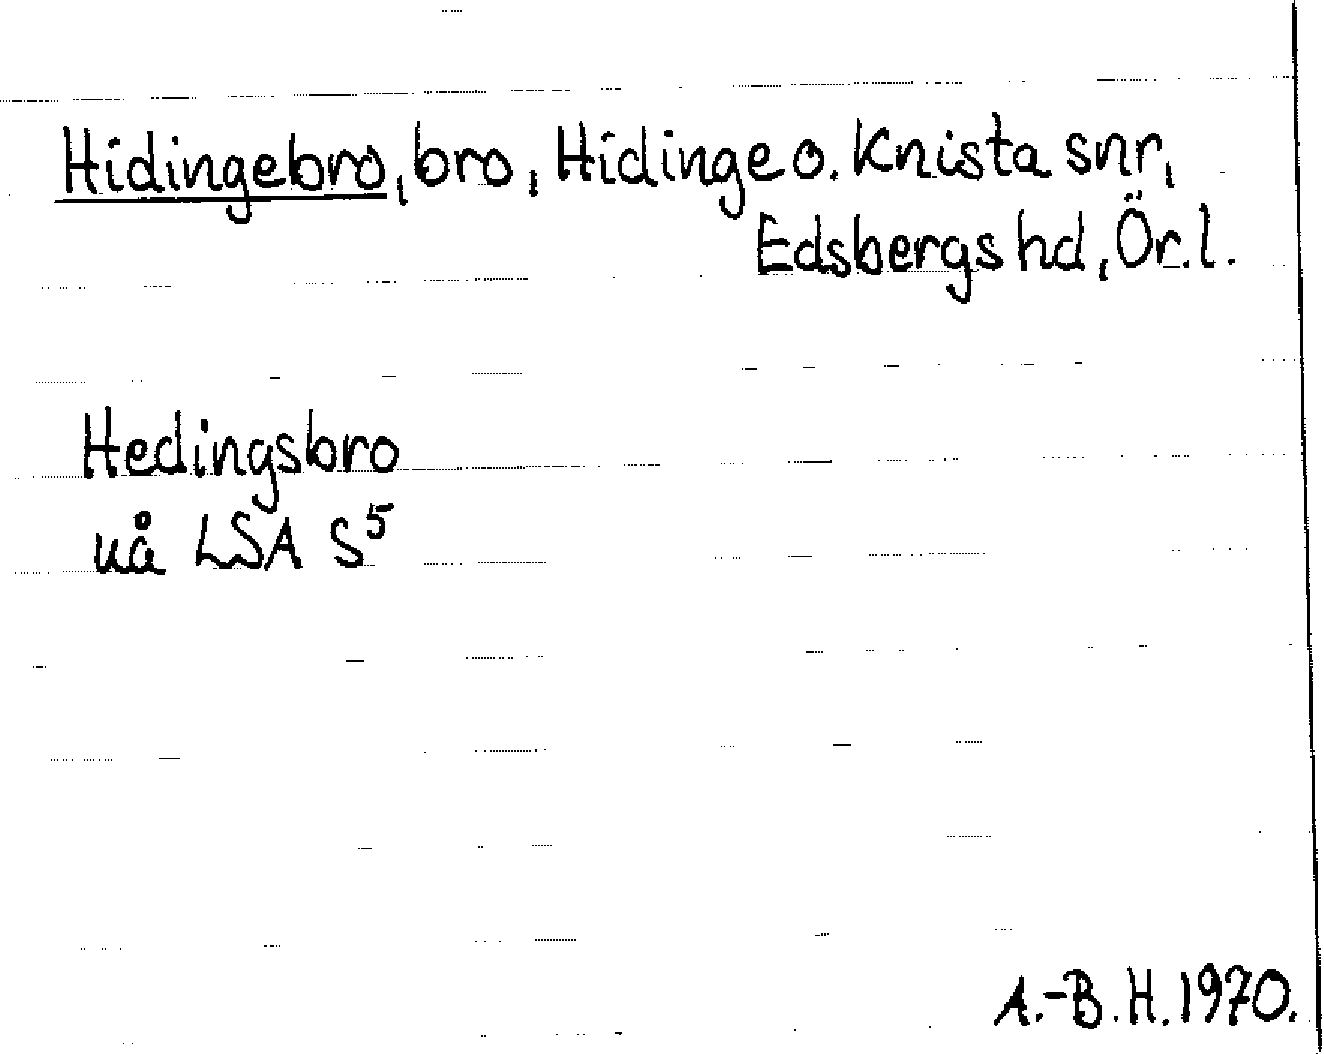 Hidingebro, bro, Hidinge o. Knista snr,
Edsbergs hd, Ör.l.
Hedingsbro
uå LSA S⁵
A.-B.H.1970.